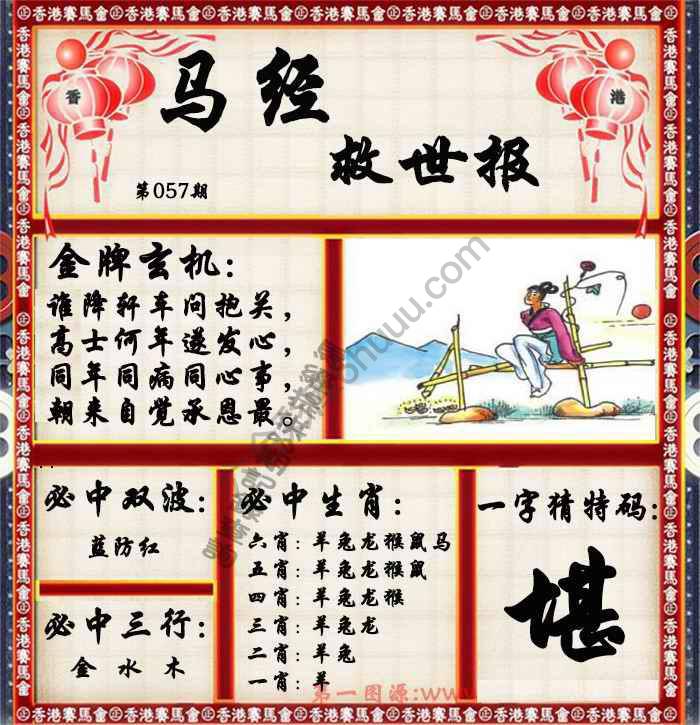 香港賽馬會
香
港
马经
救世报
第057期
金牌玄机：
谁降轩车问抱关，
高士何年遂发心，
同年同病同心事，
朝来自觉承恩最。
必中双波：
蓝防红
必中三行：
金水木
必中生肖：
六肖：羊兔龙猴鼠马
五肖：羊兔龙猴鼠
四肖：羊兔龙猴
三肖：羊兔龙
二肖：羊兔
一肖：羊
一字猜特码：
堪
第一图源:www